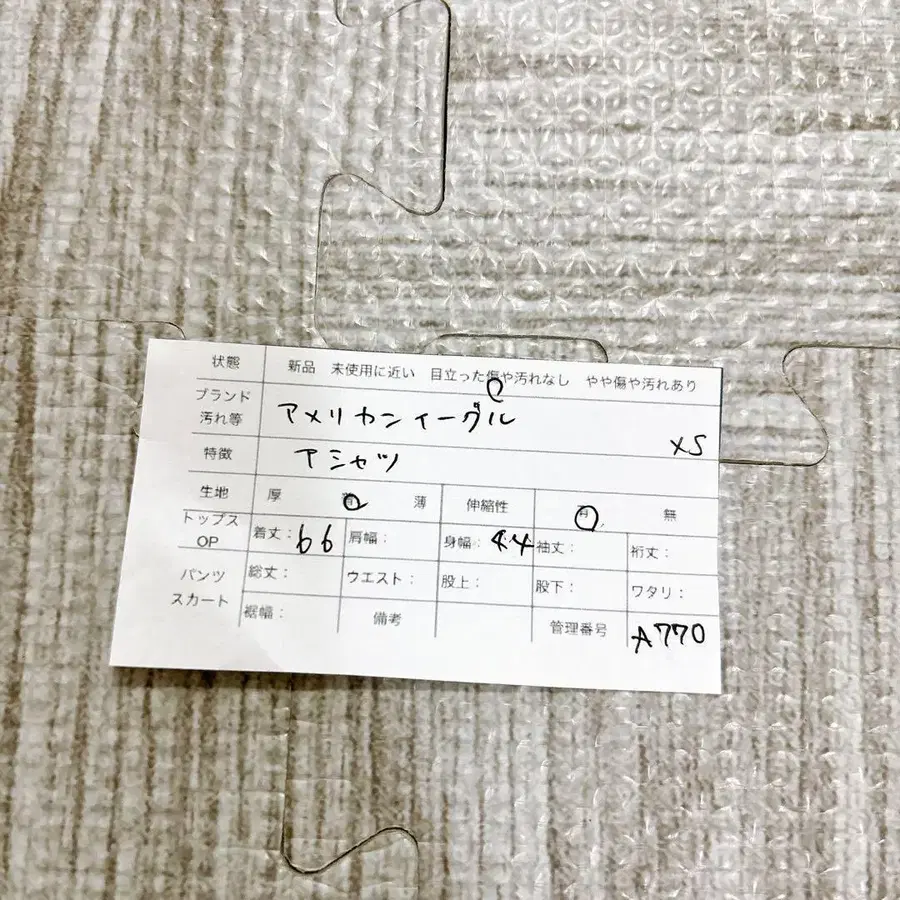 状態 新品 未使用に近い 目立った傷や汚れなし やや傷や汚れあり
ブランド
汚れ等 アメリカンイーグル XS
特徴 Tシャツ
生地 厚 薄 伸縮性 有 無
トップス
OP 着丈:66 肩幅: 身幅:44 袖丈: 裄丈:
パンツ
スカート 総丈: ウエスト: 股上: 股下: ワタリ:
裾幅: 備考 管理番号 A770